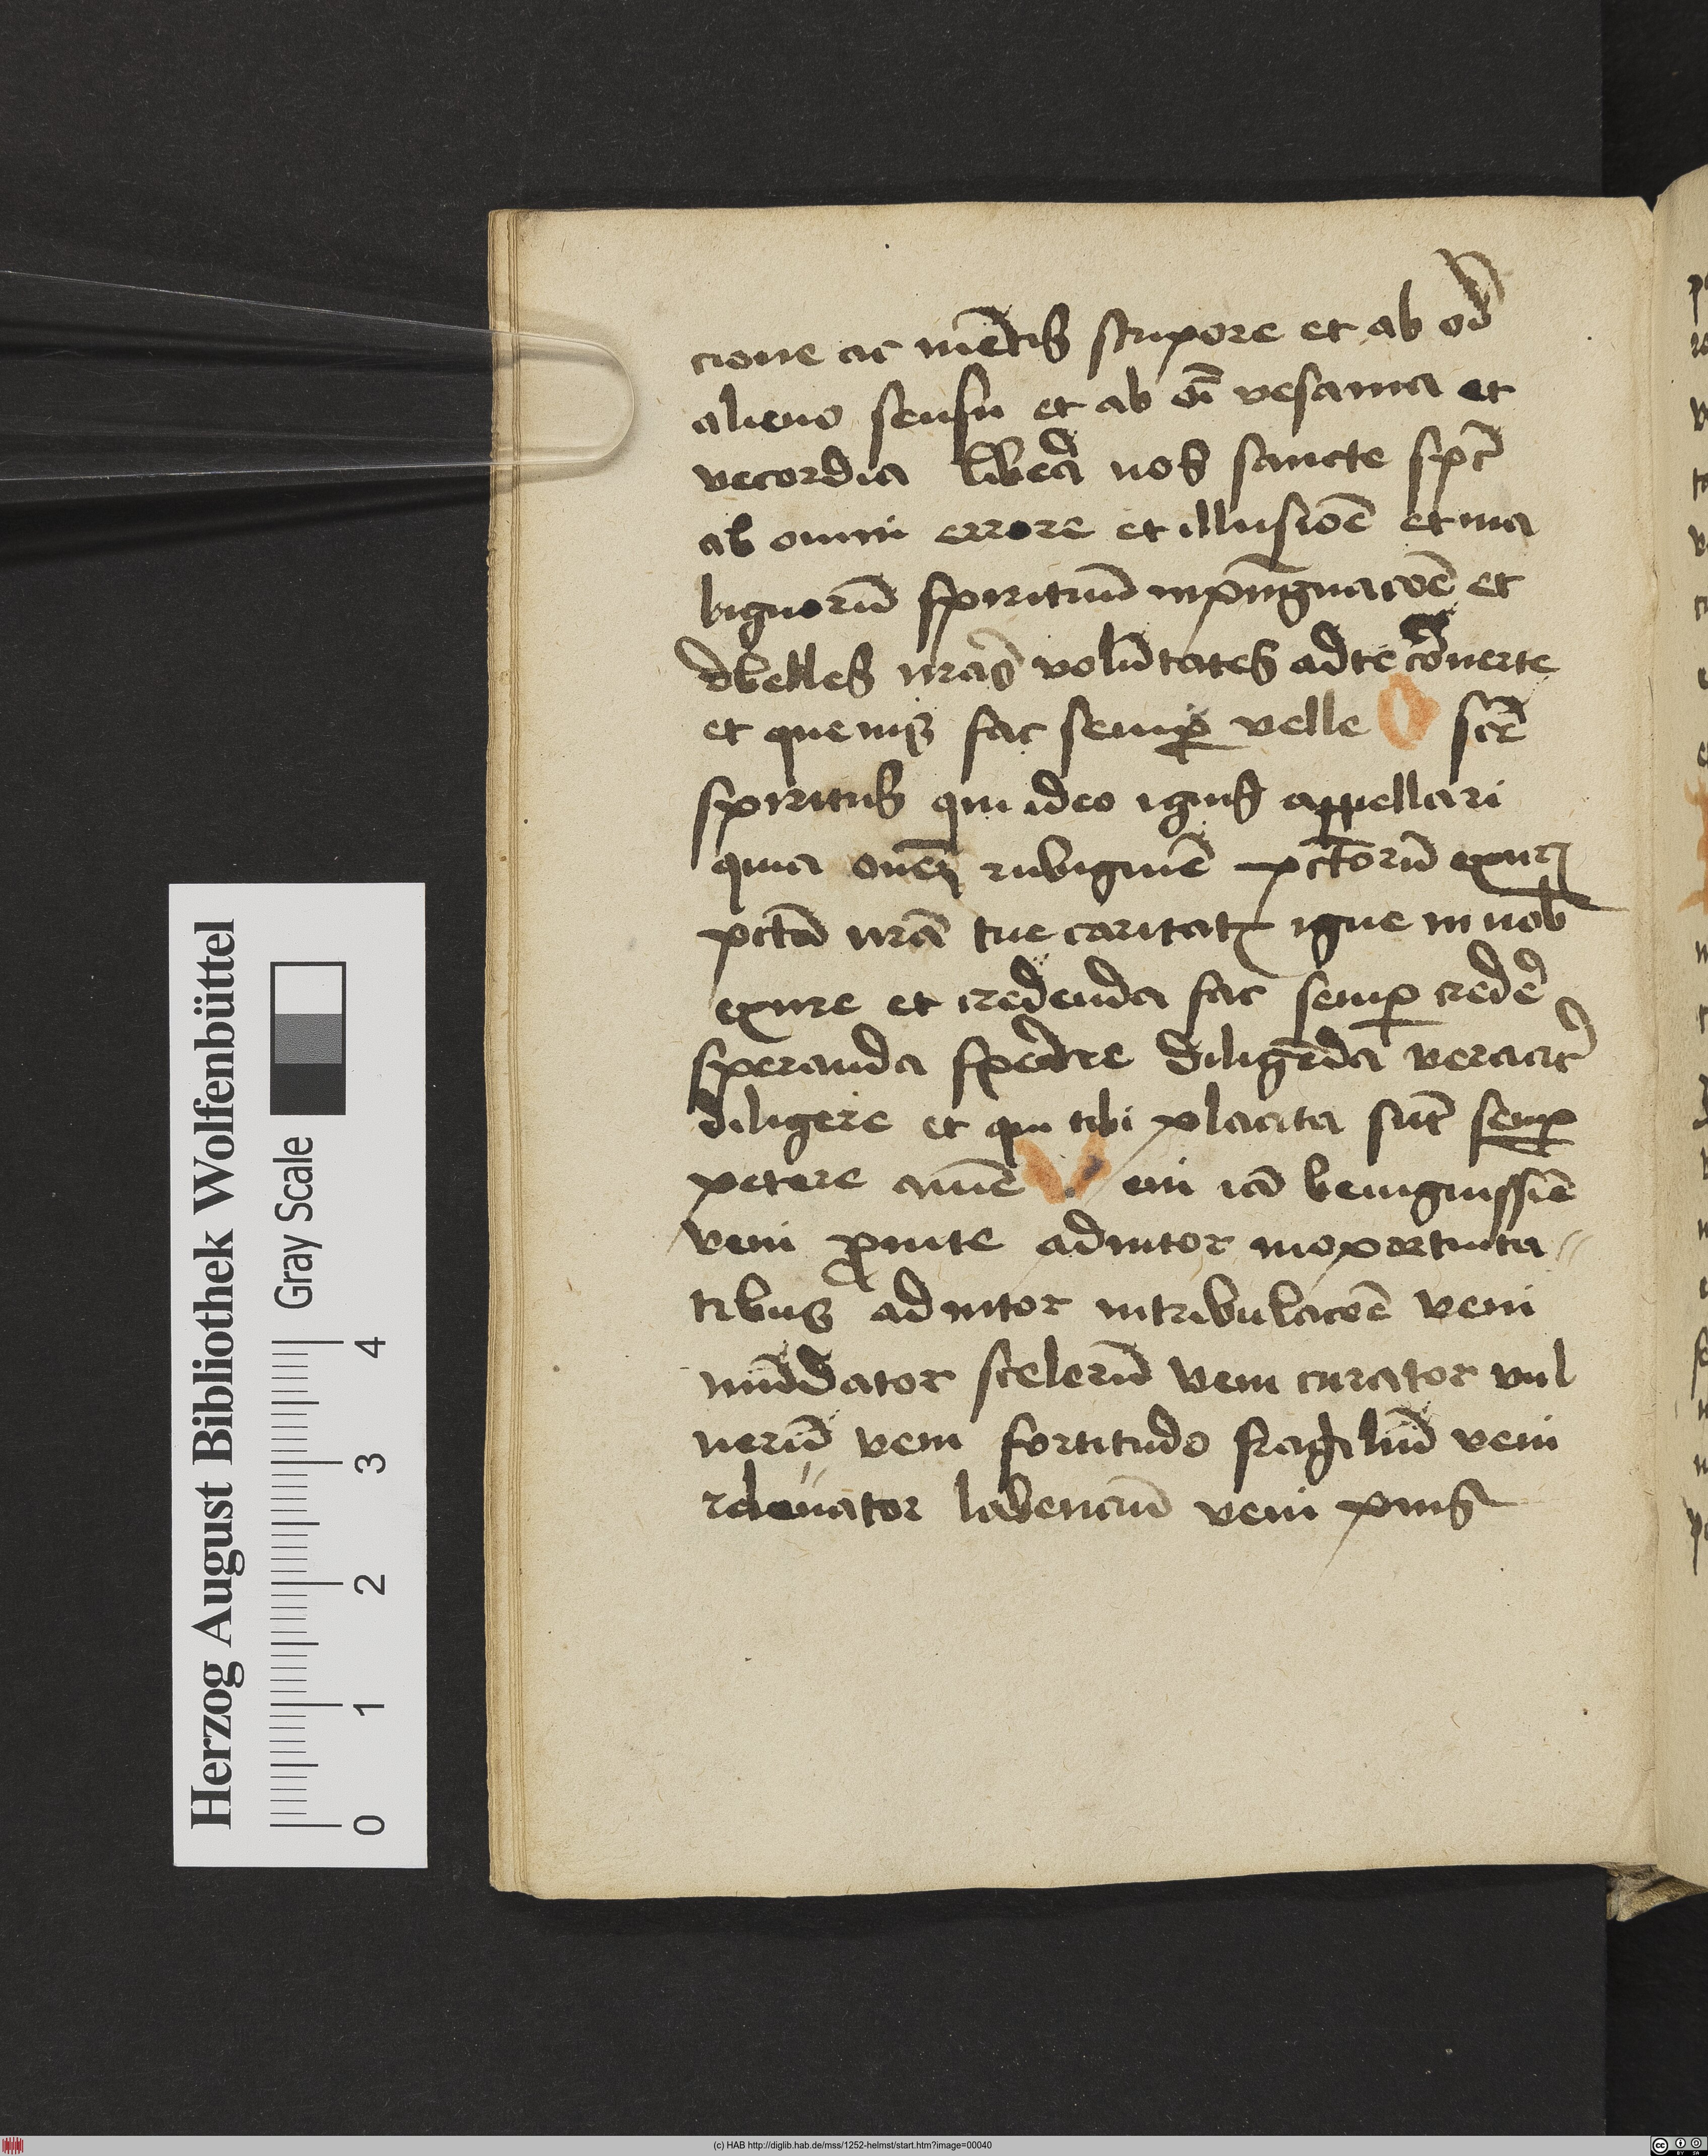 cione ac mētis stupore et ab oī
alieno sensu et ab oī vesania et
vecordia libera nos sancte spc̄
ab omni errore et illusiōe et ma
lignorū spirituū inpūgnacōe et
rebelles nr̄as volūtates ad te cōuerte
et que iuss fac semꝑ velle O scē
spiritus qui ideo ignis appellari
quia ōnem rubiginē pctōrū exuris
pctā nr̄a tue caritatꝭ igne in nob
exure et credenda fac semꝑ crede
speranda sperare diligēda veracit
diligere et que tibi placita sūt semꝑ
petere amē Veni iā benignissīe
veni ꝓuite adiutor in oportunita
tibus adiutor in tribulacōe veni
mūdator scelerū veni curator vul
nerū veni fortitudo fragiliū veni
releuator labenciū veni
Herzog August Bibliothek Wolfenbüttel
Gray Scale
0 1 2 3 4
(c) HAB http://diglib.hab.de/mss/1252-helmst/start.htm?image=00040